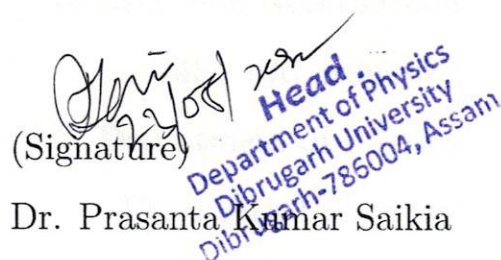 22/08/
Head
Department of Physics
Dibrugarh University
Dibrugarh-786004, Assam
(Signature)
Dr. Prasanta Kumar Saikia